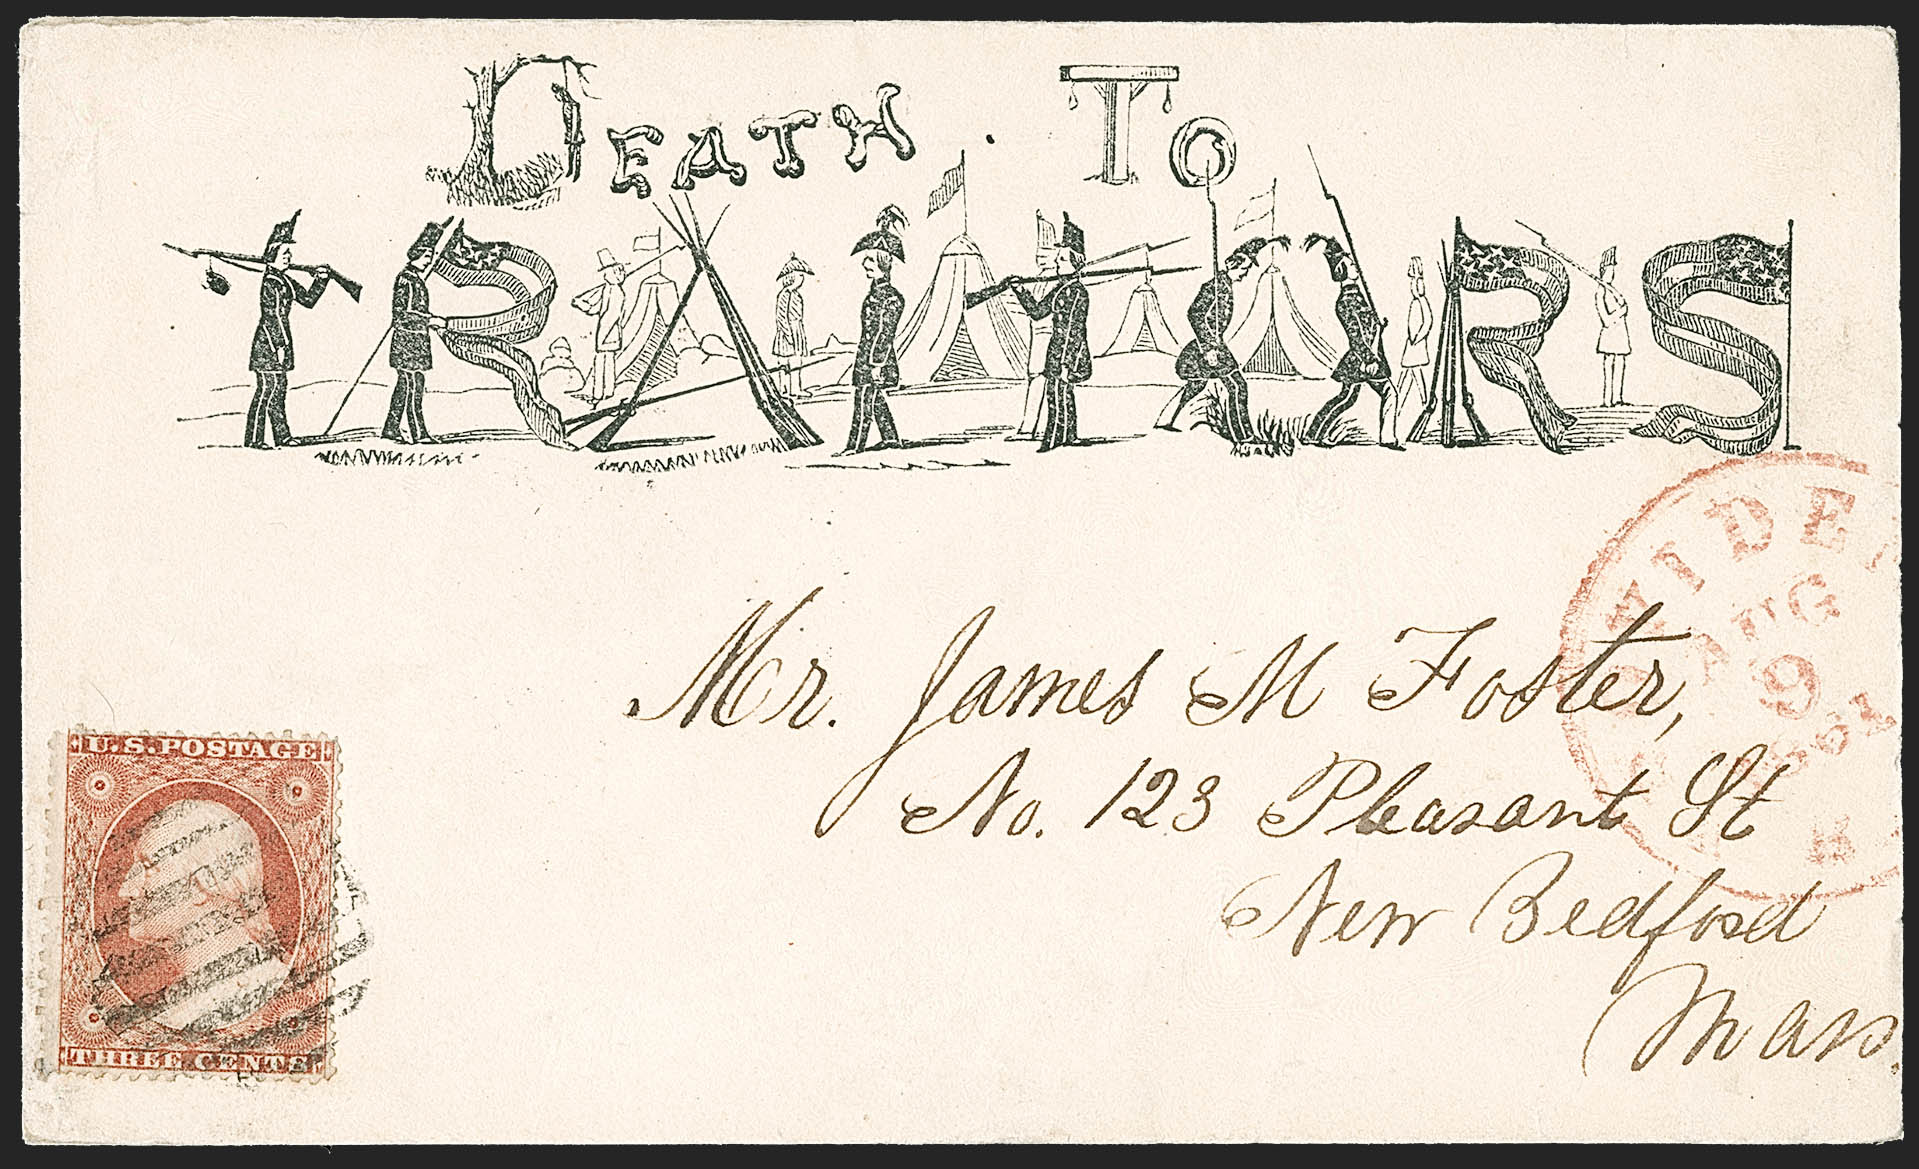 DEATH . TO
TRAITORS
WIDE
AUG
9
1861
Mr. James M Foster,
No. 123 Pleasant St
New Bedford
Mass.
U.S. POSTAGE
THREE CENTS